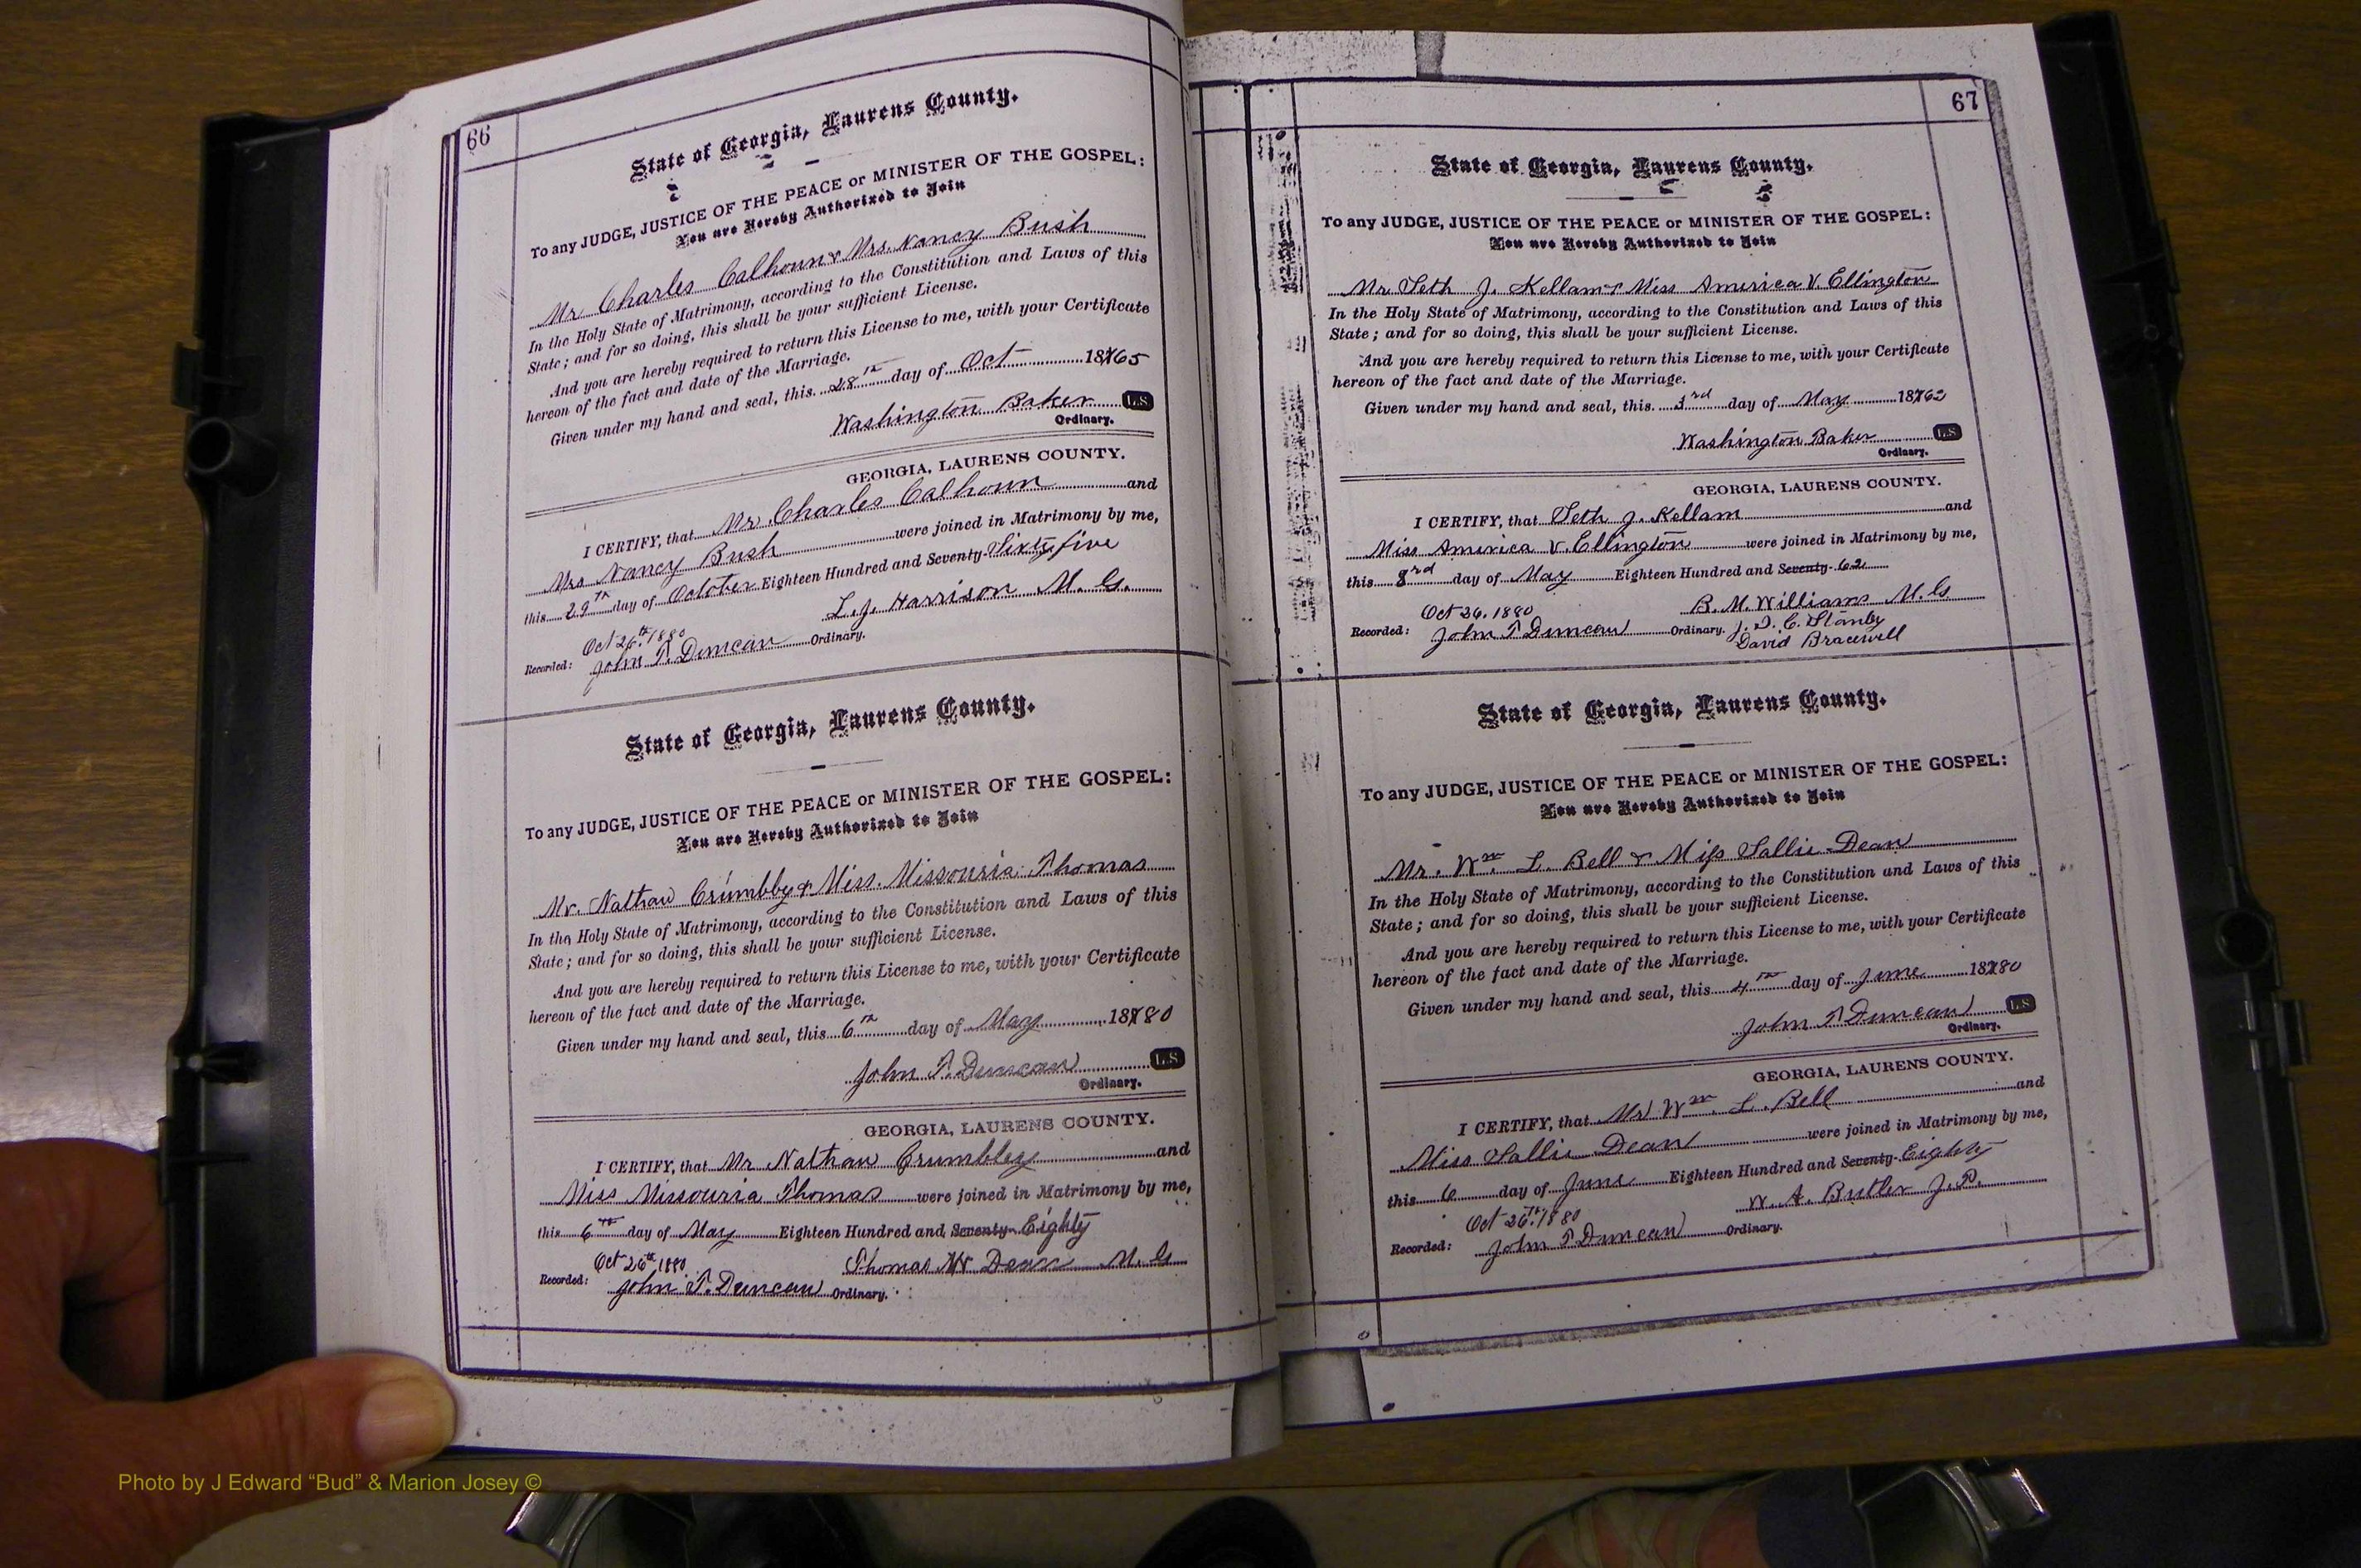 66
State of Georgia, Laurens County.
To any JUDGE, JUSTICE OF THE PEACE or MINISTER OF THE GOSPEL:
You are Hereby Authorized to Join
Mr Charles Calhoun & Mrs. Nancy Bush
In the Holy State of Matrimony, according to the Constitution and Laws of this
State; and for so doing, this shall be your sufficient License.
And you are hereby required to return this License to me, with your Certificate
hereon of the fact and date of the Marriage.
Given under my hand and seal, this 28th day of Oct 18765
Washington Baker L.S
Ordinary.
GEORGIA, LAURENS COUNTY.
I CERTIFY, that Mr Charles Calhoun and
Mrs Nancy Bush were joined in Matrimony by me,
this 29th day of October Eighteen Hundred and Seventy- Sixty five
L. J. Harrison M. G.
Oct 26th 1880
Recorded: John T. Duncan Ordinary.
State of Georgia, Laurens County.
To any JUDGE, JUSTICE OF THE PEACE or MINISTER OF THE GOSPEL:
You are Hereby Authorized to Join
Mr. Nathan Crumbby & Miss. Missouria Thomas
In the Holy State of Matrimony, according to the Constitution and Laws of this
State; and for so doing, this shall be your sufficient License.
And you are hereby required to return this License to me, with your Certificate
hereon of the fact and date of the Marriage.
Given under my hand and seal, this 6th day of May 18780
John T. Duncan L.S
Ordinary.
GEORGIA, LAURENS COUNTY.
I CERTIFY, that Mr Nathan Crumbley and
Miss Missouria Thomas were joined in Matrimony by me,
this 6th day of May Eighteen Hundred and Seventy- Eighty
Thomas W Dean M. G
Oct 26th 1880
Recorded: John T. Duncan Ordinary.
67
State of Georgia, Laurens County.
To any JUDGE, JUSTICE OF THE PEACE or MINISTER OF THE GOSPEL:
You are Hereby Authorized to Join
Mr Seth J. Kellam & Miss America V. Ellington
In the Holy State of Matrimony, according to the Constitution and Laws of this
State; and for so doing, this shall be your sufficient License.
And you are hereby required to return this License to me, with your Certificate
hereon of the fact and date of the Marriage.
Given under my hand and seal, this 3rd day of May 18762
Washington Baker L.S
Ordinary.
GEORGIA, LAURENS COUNTY.
I CERTIFY, that Seth J. Kellam and
Miss America V. Ellington were joined in Matrimony by me,
this 8rd day of May Eighteen Hundred and Seventy- 62
R. M. Williams M. G.
Oct 26, 1880
Recorded: John T Duncan Ordinary. J. D. C. Stanby
David Bracewell
State of Georgia, Laurens County.
To any JUDGE, JUSTICE OF THE PEACE or MINISTER OF THE GOSPEL:
You are Hereby Authorized to Join
Mr. Wm L. Bell & Miss Sallie Dean
In the Holy State of Matrimony, according to the Constitution and Laws of this
State; and for so doing, this shall be your sufficient License.
And you are hereby required to return this License to me, with your Certificate
hereon of the fact and date of the Marriage.
Given under my hand and seal, this 4th day of June 18780
John T Duncan L.S
Ordinary.
GEORGIA, LAURENS COUNTY.
I CERTIFY, that Mr Wm. L. Bell and
Miss Sallie Dean were joined in Matrimony by me,
this 6 day of June Eighteen Hundred and Seventy- Eighty
W. A. Butler J. P.
Oct 26th. 1880
Recorded: John T Duncan Ordinary.
Photo by J Edward “Bud” & Marion Josey ©